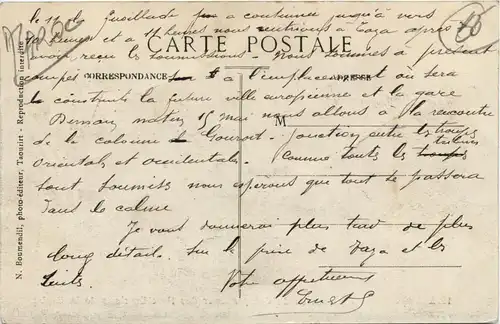 MAROC
le 11 la fusillade a continué jusqu'à vers
heures et à 11 heures nous rentrions à Taza après
avoir reçu les soumissions. Nous sommes à présent
CARTE POSTALE
campés à l'emplacement où sera
CORRESPONDANCE
ADRESSE
construite la future ville européenne et la gare
Demain matin 15 mai nous allons à la rencontre
M
de la colonne Gouraud. Jonction entre les troupes
orientales et occidentales. Comme toutes les tribus
sont soumises nous espérons que tout se passera
dans le calme
Je vous donnerai plus tard de plus
long détails sur la prise de Taza et les
suites.
Votre affectueux
Ernest
N. Boumendil, photo-éditeur, Taourirt - Reproduction interdite